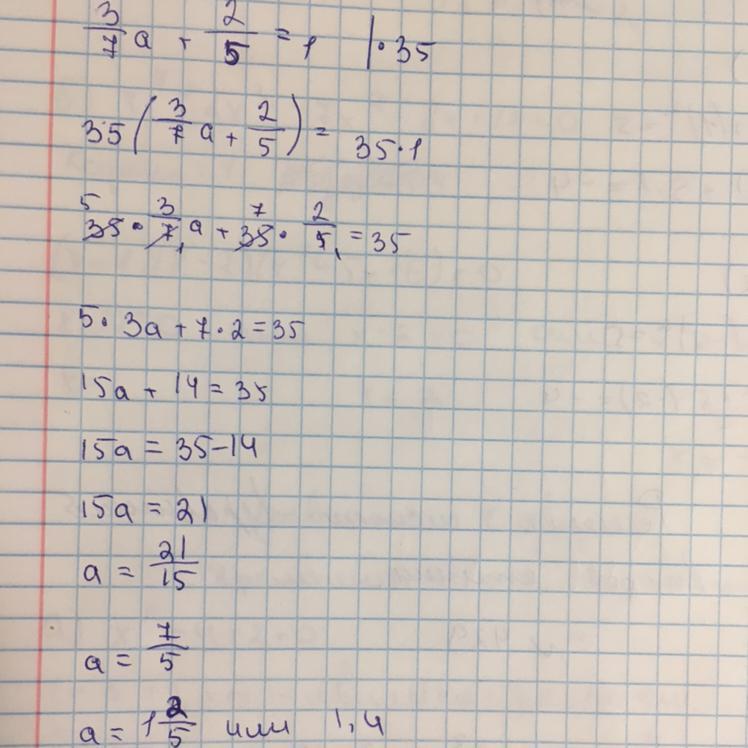 3/7 a + 2/5 = 1 | · 35
35 (3/7 a + 2/5) = 35 · 1
5 7
35 · 3/7 1 a + 35 · 2/5 1 = 35
5 · 3a + 7 · 2 = 35
15a + 14 = 35
15a = 35 - 14
15a = 21
a = 21/15
a = 7/5
a = 1 2/5 или 1,4